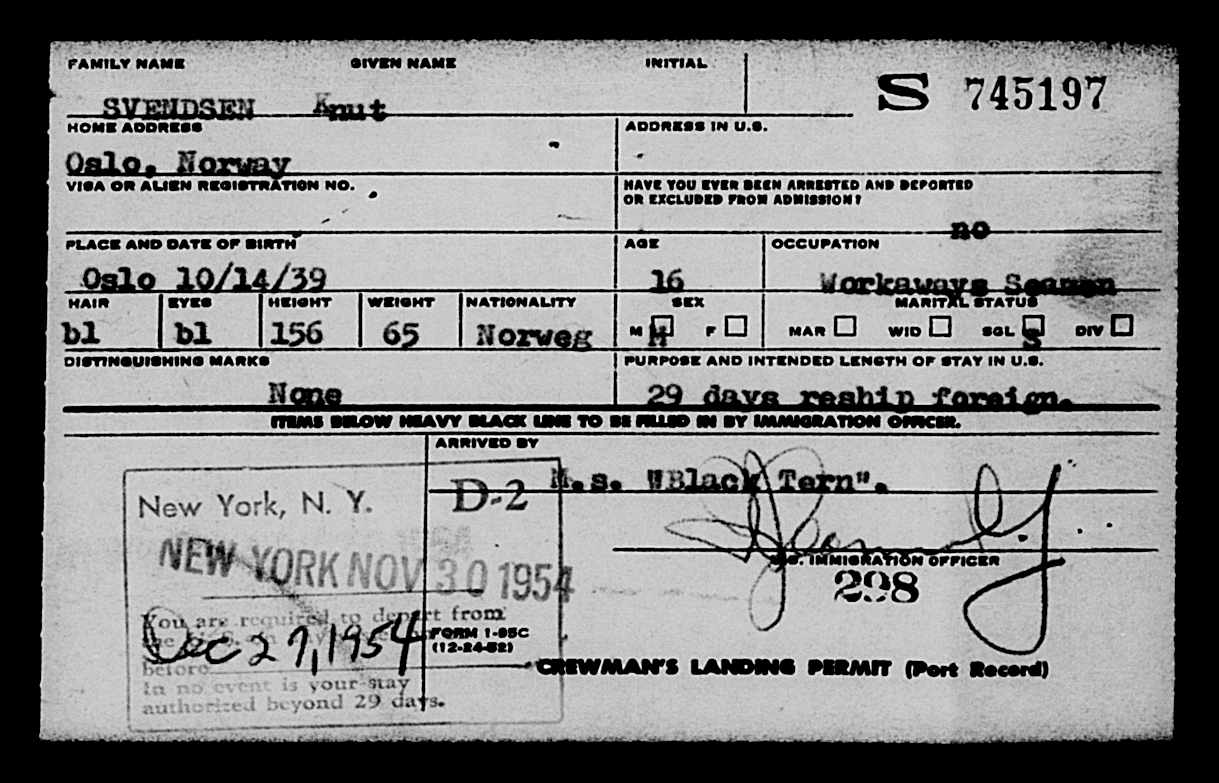 FAMILY NAME GIVEN NAME INITIAL
S 745197
SVENDSEN Knut
HOME ADDRESS ADDRESS IN U.S.
Oslo, Norway
VISA OR ALIEN REGISTRATION NO. HAVE YOU EVER BEEN ARRESTED AND DEPORTED
OR EXCLUDED FROM ADMISSION?
no
PLACE AND DATE OF BIRTH AGE OCCUPATION
Oslo 10/14/39 16 Workaways Seaman
HAIR EYES HEIGHT WEIGHT NATIONALITY SEX MARITAL STATUS
bl bl 156 65 Norweg M M F MAR WID SGL S DIV
DISTINGUISHING MARKS PURPOSE AND INTENDED LENGTH OF STAY IN U.S.
None 29 days reship foreign.
ITEMS BELOW HEAVY BLACK LINE TO BE FILLED IN BY IMMIGRATION OFFICER.
ARRIVED BY
M.s. "Black Tern".
New York, N. Y. D-2
NEW YORK NOV 30 1954
U.S. IMMIGRATION OFFICER
298
You are required to depart from
Dec 29, 1954
FORM I-95C
(12-24-52)
before
CREWMAN'S LANDING PERMIT (Port Record)
In no event is your stay
authorized beyond 29 days.